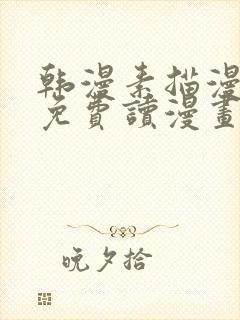 韩漫素描漫
免費讀漫畫
晚夕拾